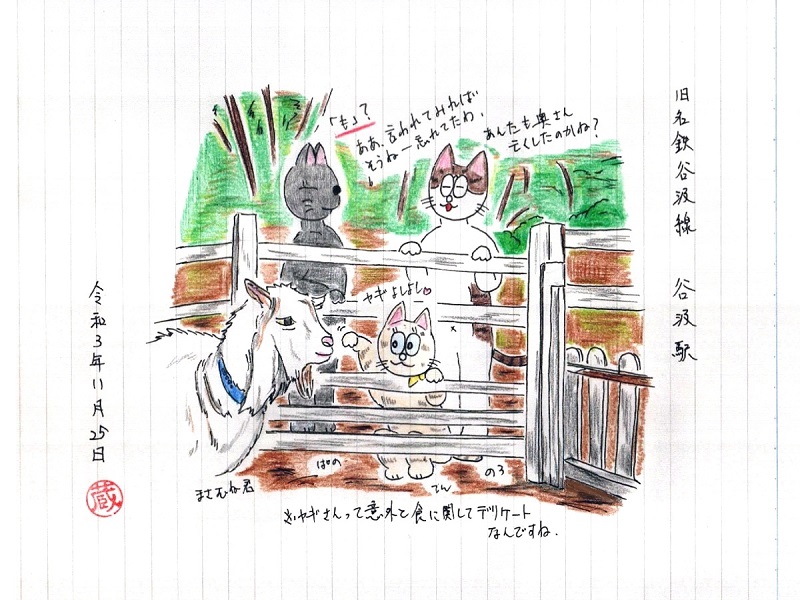 旧名鉄谷汲線 谷汲駅
あんたも奥さん
亡くしたのかね？
「も」？
ああ、言われてみれば
そうねー忘れてたわ、
ヤギよしよし♡
ぱの
てん
のろ
まさむね君
ヤギさんって意外と食に関してデリケート
なんですね.
令和3年11月25日
蔵